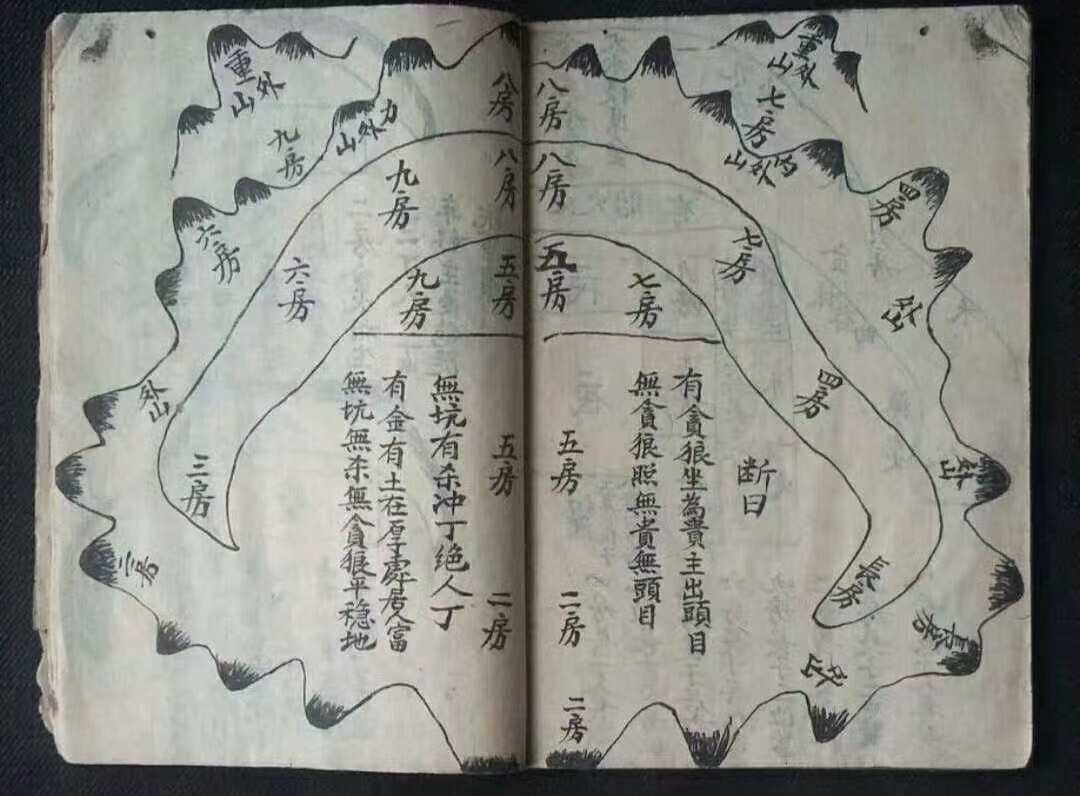 八房
重外山
七房
内外山
四房
外山
八房
七房
五房
七房
四房
外山
長房
長房
外山
断曰
有貪狼坐為貴主出頭目
無貪狼照無貴無頭目
五房
二房
二房
八房
力外山
重外山
九房
八房
九房
六房
六房
五房
九房
外山
三房
三房
五房
二房
無坑有杀冲丁绝人丁
有金有土在厚處居人富
無坑無杀無貪狼平穩地